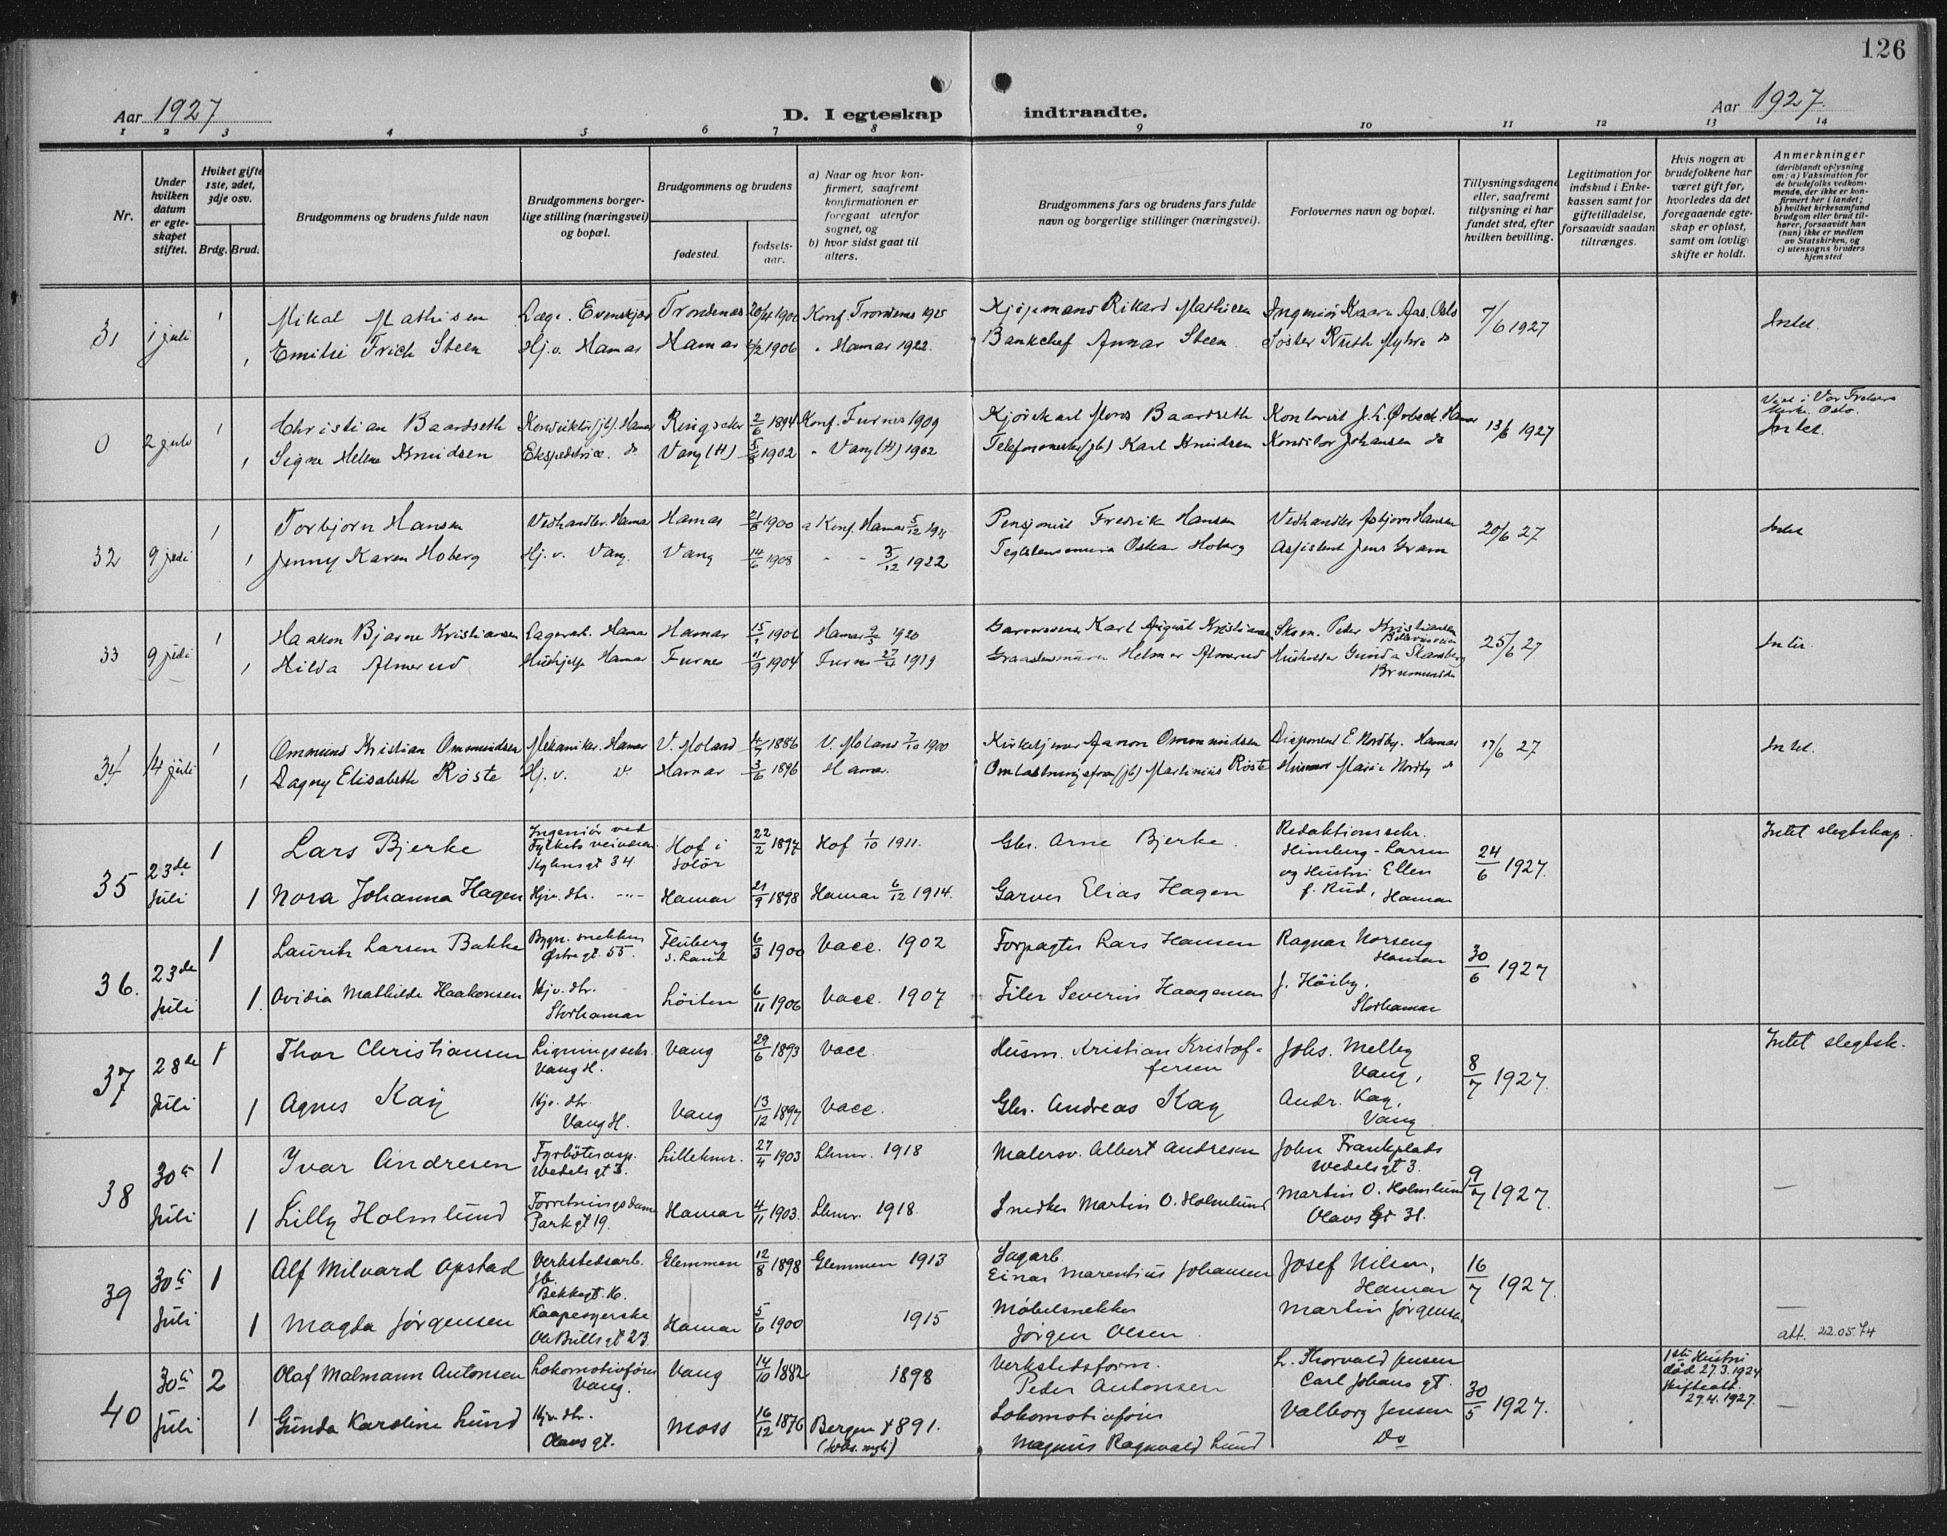 126
Aar 1927
D. I egteskap indtraadte.
Aar 1927.
1 2 3 4 5 6 7 8 9 10 11 12 13 14
Nr.
Under hvilken datum er egteskapet stiftet.
Hvilket gifte 1ste, 2det, 3dje osv.
Brdg. Brud.
Brudgommens og brudens fulde navn
Brudgommens borgerlige stilling (næringsvei) og bopæl.
Brudgommens og brudens
fødested.
fødselsaar.
a) Naar og hvor konfirmert, saafremt konfirmationen er foregaat utenfor sognet, og
b) hvor sidst gaat til alters.
Brudgommens fars og brudens fars fulde navn og borgerlige stillinger (næringsvei).
Forlovernes navn og bopæl.
Tillysningsdagene eller, saafremt tillysning ei har fundet sted, efter hvilken bevilling.
Legitimation for indskud i Enkekassen samt for giftetilladelse, forsaavidt saadan tiltrænges.
Hvis nogen av brudefolkene har været gift før, hvorledes da det foregaaende egteskap er opløst, samt om lovlig skifte er holdt.
Anmerkninger
(deriblandt oplysning om: a) Vaksination for de brudefolks vedkommende, der ikke er konfirmert her i landet; b) hvilket kirkesamfund brudgom eller brud tilhører, forsaavidt han (hun) ikke er medlem av Statskirken, og c) utensogns bruders hjemsted
31 1 juli 1 Mikal Mathisen Læge. Evenskjær Trondenes 1901 Konf. Trondenes 1915 Kjøpmand Rikard Mathisen Ingeniør Kaare Aas. Oslo 7/6 1927 Intet.
1 Emilie Frich Steen Hj.v. Hamar Hamar 1906 " Hamar 1922. Bankchef Annar Steen. Søster Ruth Myhre do
0 2 juli 1 Christian Baardseth Konduktør (jb). Hamar Ringsaker 2/6 1894 Konf. Furnes 1909 Baardseth Kontorist Hamar 13/6 1927 Vixet i Vor Frelsers Kirke. Oslo. Intet.
1 Signe Helene Knudsen Ekspeditrice. do Vang (H) 5/8 1902 " Vang (H) 1902 Karl Knudsen Konditor Johansen do
32 9 juli 1 Torbjørn Hansen Vedhandler. Hamar Hamar 21/8 1900 a Konf. Hamar Pensjonist Fredrik Hansen Vedhandler Asbjørn Hansen 20/6 27 Intet
1 Jenny Karen Hoberg Hj.v. Vang. Vang 14/6 1908 " " 3/12 1922 Oskar Hoberg Assistent Jens Gram
33 9 juli 1 Haakon Bjarne Kristiansen Lagerarb. Hamar Hamar 15/1 1906 Hamar 1920 Karl August Kristiansen Skom. Peder Kristiansen 25/6 27 Intet.
1 Hilda Almerud Hushjelp Hamar Furnes 11/9 1904 Furnes 1919 Helmer Almerud Husholder Gunda Brumunddal
34 14 juli 1 Ommund Kristian Ommundsen Mekaniker. Hamar V. Moland 4/7 1886 V. Moland 7/10 1900 Kirketjener Aanon Ommundsen Disponent E. Nordby. Hamar 17/6 27 Intet.
1 Dagny Elisabeth Røste Hj.v. Hamar 3/6 1896 Hamar Martinius Røste Marie Nordby do
35 23de Juli 1 Lars Bjerke Ingeniør ved Fylkets veivæsen 34 Hof i Solør 22/2 1897 Hof 1/10 1911. Gbr. Arne Bjerke. Redaktionssekr. Himberg-Larsen og Hustru Ellen f. Rud, Hamar 24/6 1927. Intet slegtskap.
1 Nora Johanna Hagen Hjv. dtr. -"- Hamar 21/9 1898 Hamar 6/12 1914. Garver Elias Hagen
36. 23de Juli 1 Laurits Larsen Bakke Bygn. snekker Østregt. 55. Fluberg S. Land 6/3 1900 Vacc. 1902 Forpagter Lars Hansen Ragnar Norseng Hamar 30/6 1927
1. Ovidia Mathilde Haakonsen Hjv. dtr. Storhamar Løiten 6/11 1906 Vacc. 1907 Filer Severin Haagensen J. Høiby, Storhamar
37 28de Juli 1 Thor Christiansen Ligningssekr. Vang H. Vang 29/6 1893 Vacc. Husm. Kristian Kristoffersen Johs. Melby Vang, 8/7 1927. Intet slegtsk.
1 Agnes Kay Hjv. dtr. Vang H. Vang 13/12 1897 Vacc. Gbr. Andreas Kay Andr. Kay, Vang
38 30te Juli 1 Yvar Andresen Fyrbøterasp. Wedelsgt 3. Lillehmr. 27/4 1903 Lhmr. 1918 Malersv. Albert Andresen John Frankplads Wedelsgt 3. 9/7 1927. —
1 Lilly Holmlund Forretningsdame Parkgt 19. Hamar 4/11 1903. Lhmr. 1918. Snedker Martin O. Holmlund Martin O. Holmlund Olavs gt
39 30te Juli 1 Alf Milvard Opstad Verkstedsarb. jb. Bekkegt. 16. Glemmen 12/8 1898 Glemmen 1913 Sagarb. Einar Marentius Johansen Josef Nilsen, Hamar 16/7 1927.
1 Magda Jørgensen Kaapesyerske Ole Bullsgt 23. Hamar 5/6 1900 1915 Møbelsnekker Jørgen Olsen Martin Jørgensen — att. 22.05.74
40 30te Juli 2 Olaf Malmann Antonsen Lokomotivfører Vang. Vang 14/10 1882 1898 Verkstedsform. Peder Antonsen L. Thorvald Jensen Carl Johans gt. 30/5 1927. 1ste Hustru død 27.3.1924 Skifteatt. 29.4.1927. —
1 Gunda Karoline Lund Hjv. dtr. Olavs gt. Moss 16/12 1876 Bergen 1891. Lokomotivfører Magnus Ragnvald Lund Valborg Jensen Do